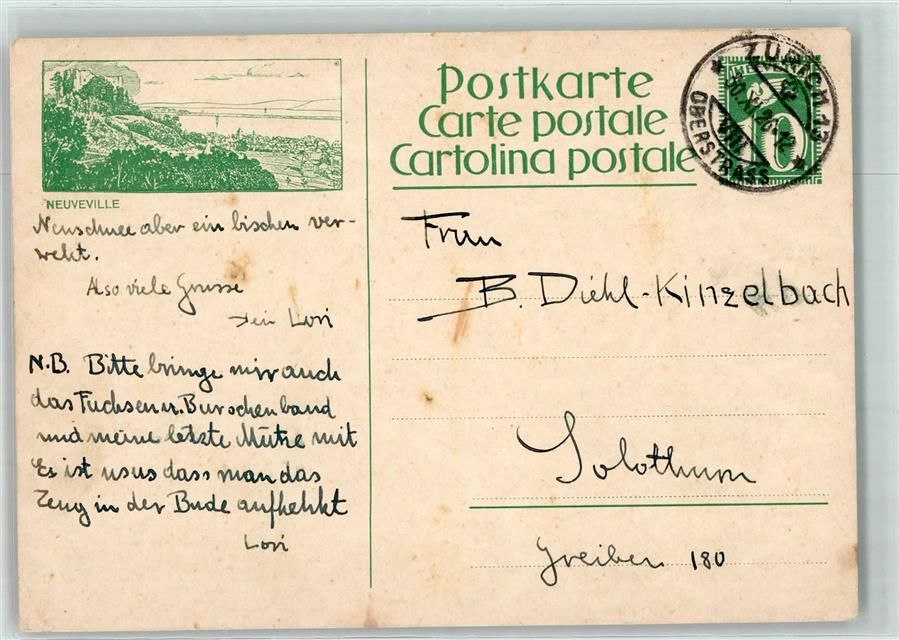 NEUVEVILLE
Neuschnee aber ein bischen ver-
weht.
Also viele Grüsse
Dein Lori
N.B. Bitte bringe mir auch
das Fuchsen u. Burschenband
und meine letzte Mütze mit
Es ist usus dass man das
Zeug in der Bude aufhehkt
Lori
Postkarte
Carte postale
Cartolina postale
ZÜRICH 13
OBERSTRASS
10
Frau
B. Diehl-Kinzelbach
Solothurn
Greiben 180